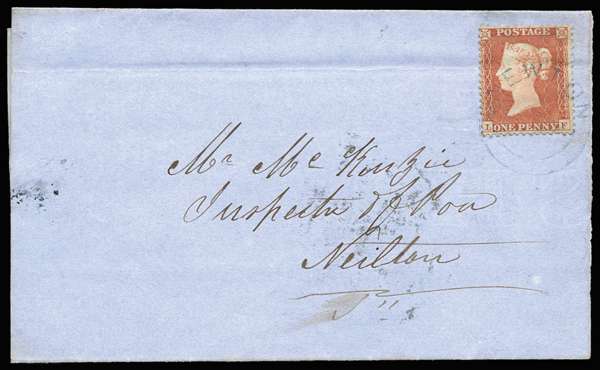 POSTAGE
EWTON
ONE PENNY
Mr Mc Kenzie
Inspector of Poor
Neilston